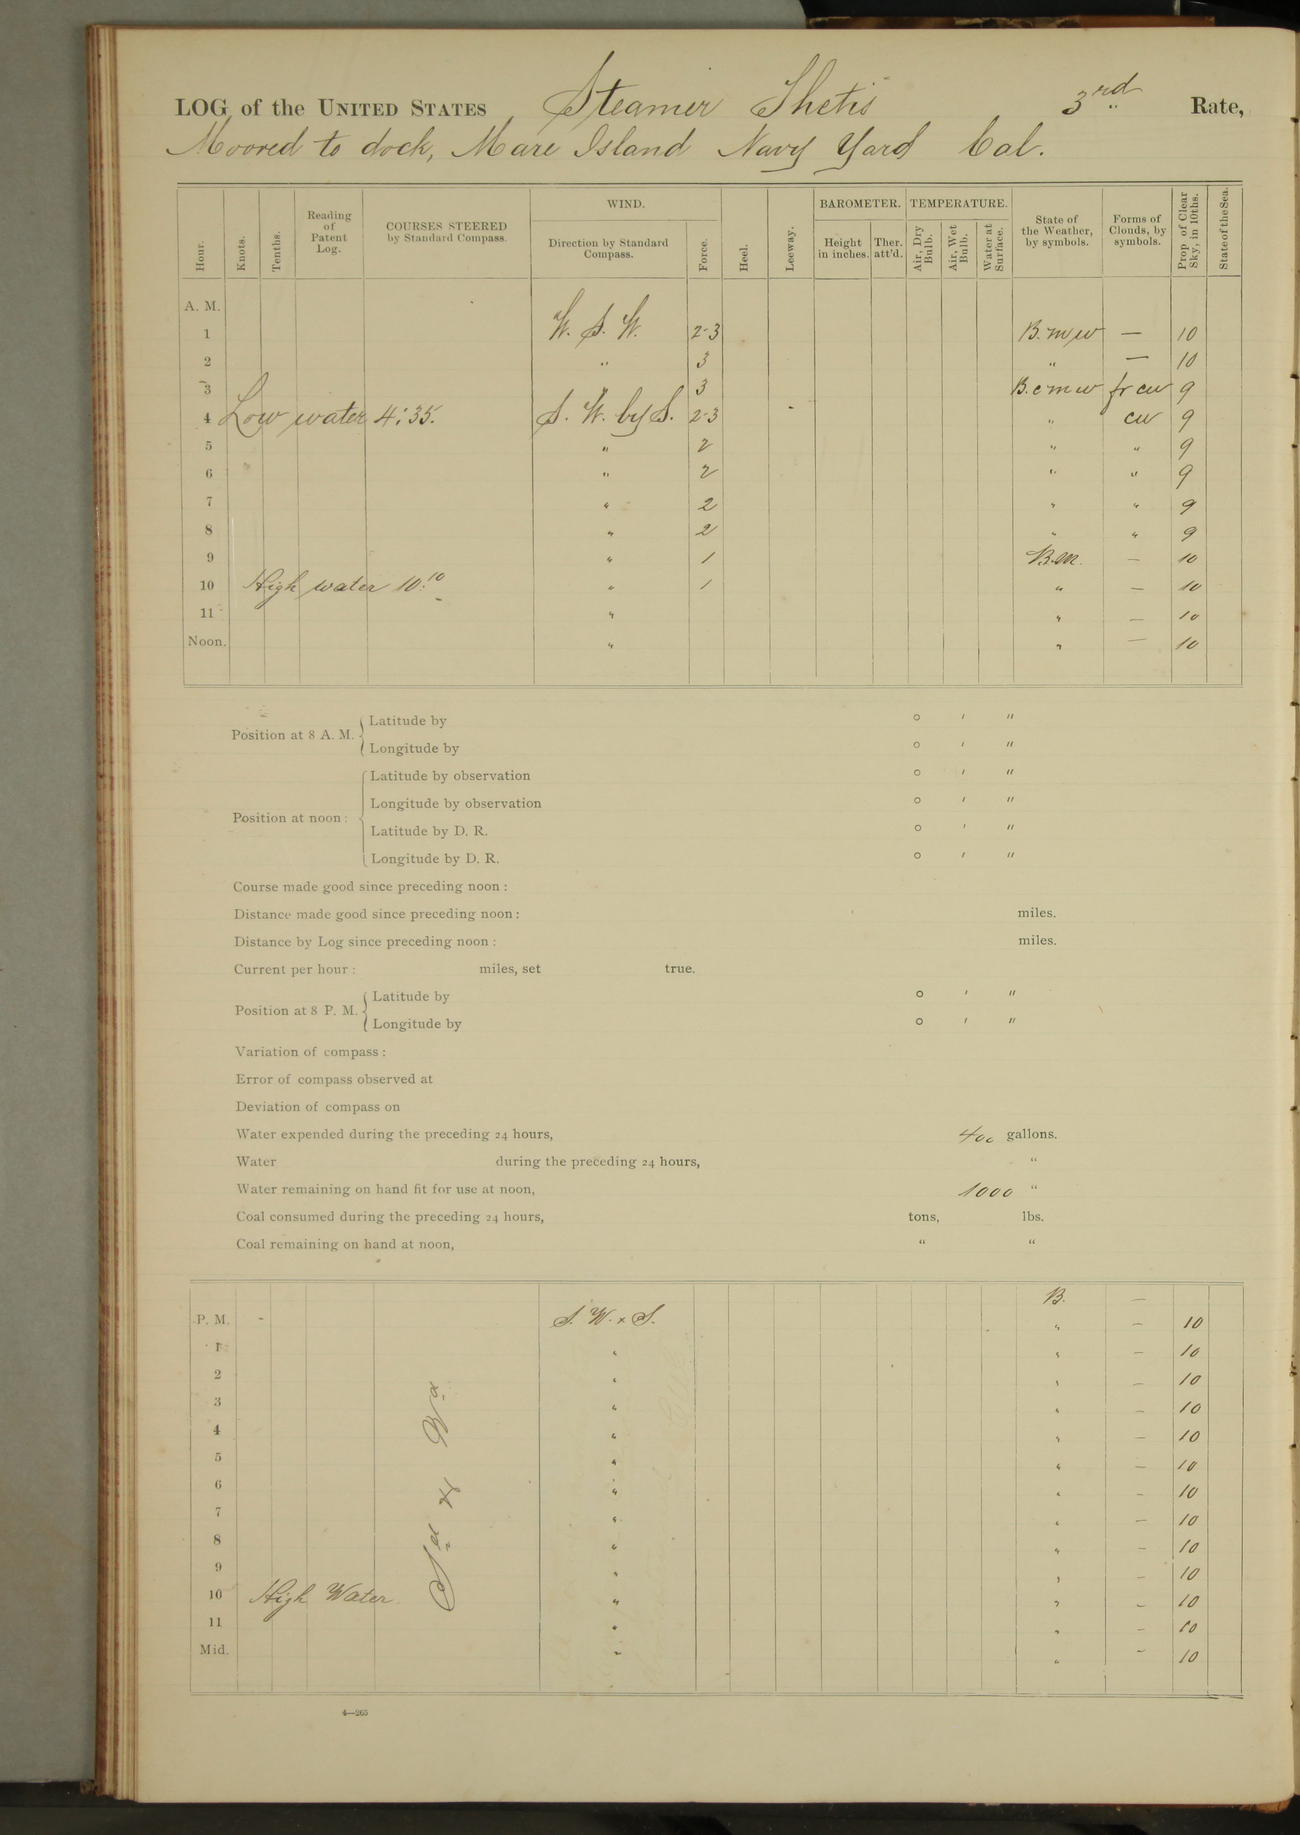 LOG of the UNITED STATES Steamer Thetis 3rd Rate,
Moored to dock, Mare Island Navy Yard Cal.
Hour. Knots. Tenths. Reading of Patent Log. COURSES STEERED by Standard Compass. WIND. Direction by Standard Compass. Force. Heel. Leeway. BAROMETER. Height in inches. Ther. att'd. TEMPERATURE. Air, Dry Bulb. Air, Wet Bulb. Water at Surface. State of the Weather, by symbols. Forms of Clouds, by symbols. Prop of Clear Sky, in 10ths. State of the Sea.
A. M.
1 W. S. W. 2-3 B. m w — 10
2 " 3 " — 10
3 " 3 B. c m w fr cu 9
4 Low water 4:35. S. W. by S. 2-3 " cu 9
5 " 2 " " 9
6 " 2 " " 9
7 " 2 " " 9
8 " 2 " " 9
9 " 1 B.m. — 10
10 High water 10:10 " 1 " — 10
11 " " — 10
Noon. " " — 10
Position at 8 A. M. { Latitude by ° ′ ″
Longitude by ° ′ ″
Position at noon : { Latitude by observation ° ′ ″
Longitude by observation ° ′ ″
Latitude by D. R. ° ′ ″
Longitude by D. R. ° ′ ″
Course made good since preceding noon :
Distance made good since preceding noon : miles.
Distance by Log since preceding noon : miles.
Current per hour : miles, set true.
Position at 8 P. M. { Latitude by ° ′ ″
Longitude by ° ′ ″
Variation of compass :
Error of compass observed at
Deviation of compass on
Water expended during the preceding 24 hours, 400 gallons.
Water during the preceding 24 hours, "
Water remaining on hand fit for use at noon, 1000 "
Coal consumed during the preceding 24 hours, tons, lbs.
Coal remaining on hand at noon, " "
B. —
P. M. S. W. x S. " — 10
1 " " — 10
2 " " — 10
3 " " — 10
4 " " — 10
5 " " — 10
6 " " — 10
7 " " — 10
8 " " — 10
9 " " — 10
10 High Water " " — 10
11 " " — 10
Mid. " " — 10
4—265